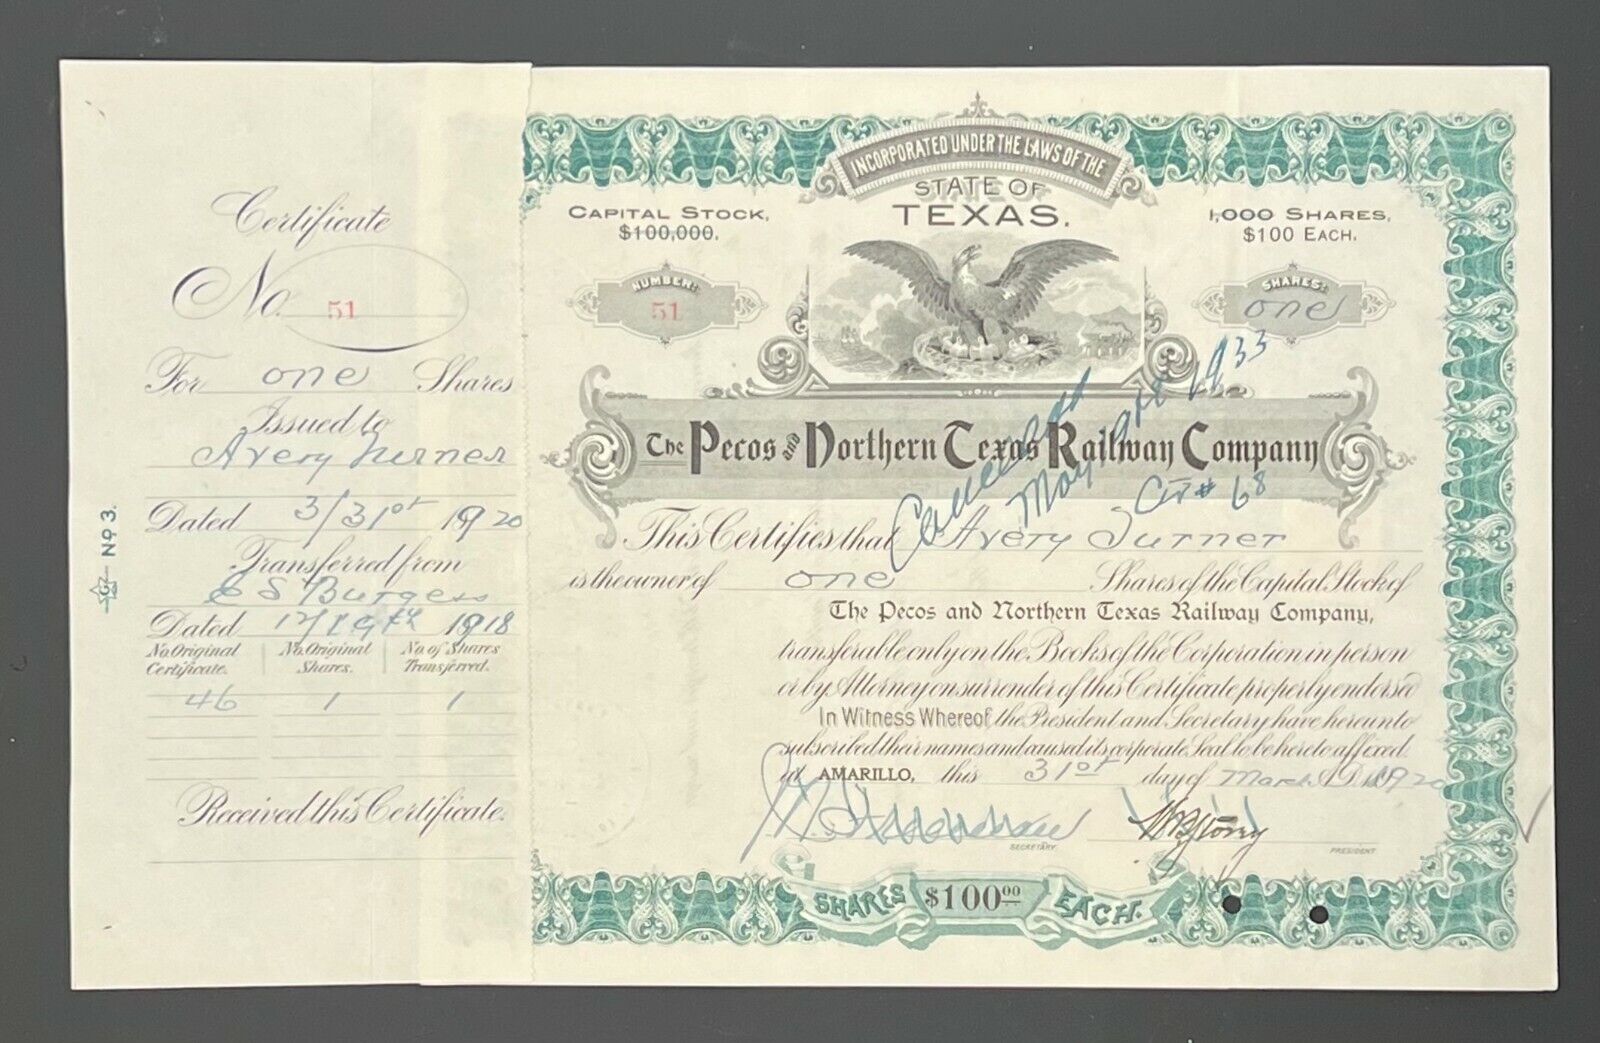 Certificate
No. 51
For one Shares
Issued to
Avery Turner
Dated 3/31st 1920
Transferred from
C S Burgess
Dated 12/19th 1918
No. Original Certificate. No. Original Shares. No. of Shares Transferred.
46 1 1
Received this Certificate.
Nº 3.
INCORPORATED UNDER THE LAWS OF THE
STATE OF
TEXAS.
CAPITAL STOCK,
$100,000.
1,000 SHARES,
$100 EACH.
NUMBER:
51
SHARES:
one
The Pecos and Northern Texas Railway Company
Cancelled
May 1933
Ctf # 68
This Certifies that Avery Turner
is the owner of one Shares of the Capital Stock of
The Pecos and Northern Texas Railway Company,
transferable only on the Books of the Corporation in person
or by Attorney on surrender of this Certificate properly endorsed
In Witness Whereof, the President and Secretary have hereunto
subscribed their names and caused its corporate Seal to be hereto affixed
at AMARILLO, this 31st day of March A.D. 1920
SECRETARY.
PRESIDENT
SHARES $100.00 EACH.